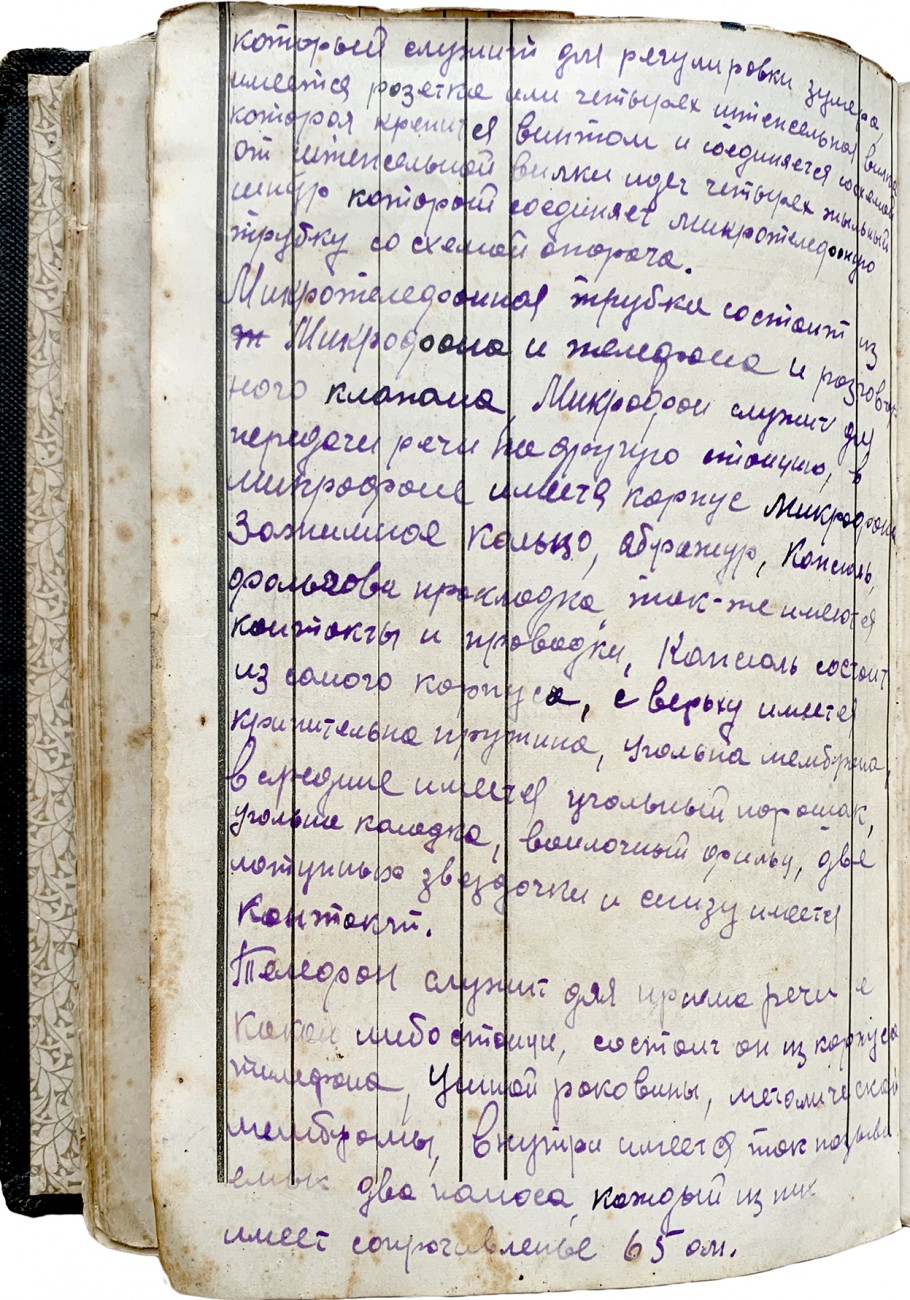 который служит для регулировки зумера,
имеется розетка или четырех штепсельная вилка
которая крепится винтом и соединяется со схемой
от штепсельной вилки идет четырех жыльный
шнур который соединяет микротелефонную
трубку со схемой апарата.
Микротелефонная трубка состоит из
Микрофона и телефона и разговор-
ного клапана, Микрофон служит для
передачи речи на другую станцию, в
микрофоне имеется карпус Микрофона
Зажимное кальцо, абражур, Капсюль,
фальгова прокладка, так-же имеются
контакты и проводки, Капсюль состоит
из самого карпуса, с верьху имеется
крипительна пружина, угольна мембрана,
в средине имеется угольный порошак,
угольна каладка, воилочный фильц, две
латунных звездочки и снизу имеется
Контакт.
Телефон служит для приема речи с
какой либо станции, состоит он из карпуса
телефона, Ушной раковины, металической
мембраны, внутри имеется так называ
емых два полюса, каждый из них
имеет сопрочивленье 65 ом.